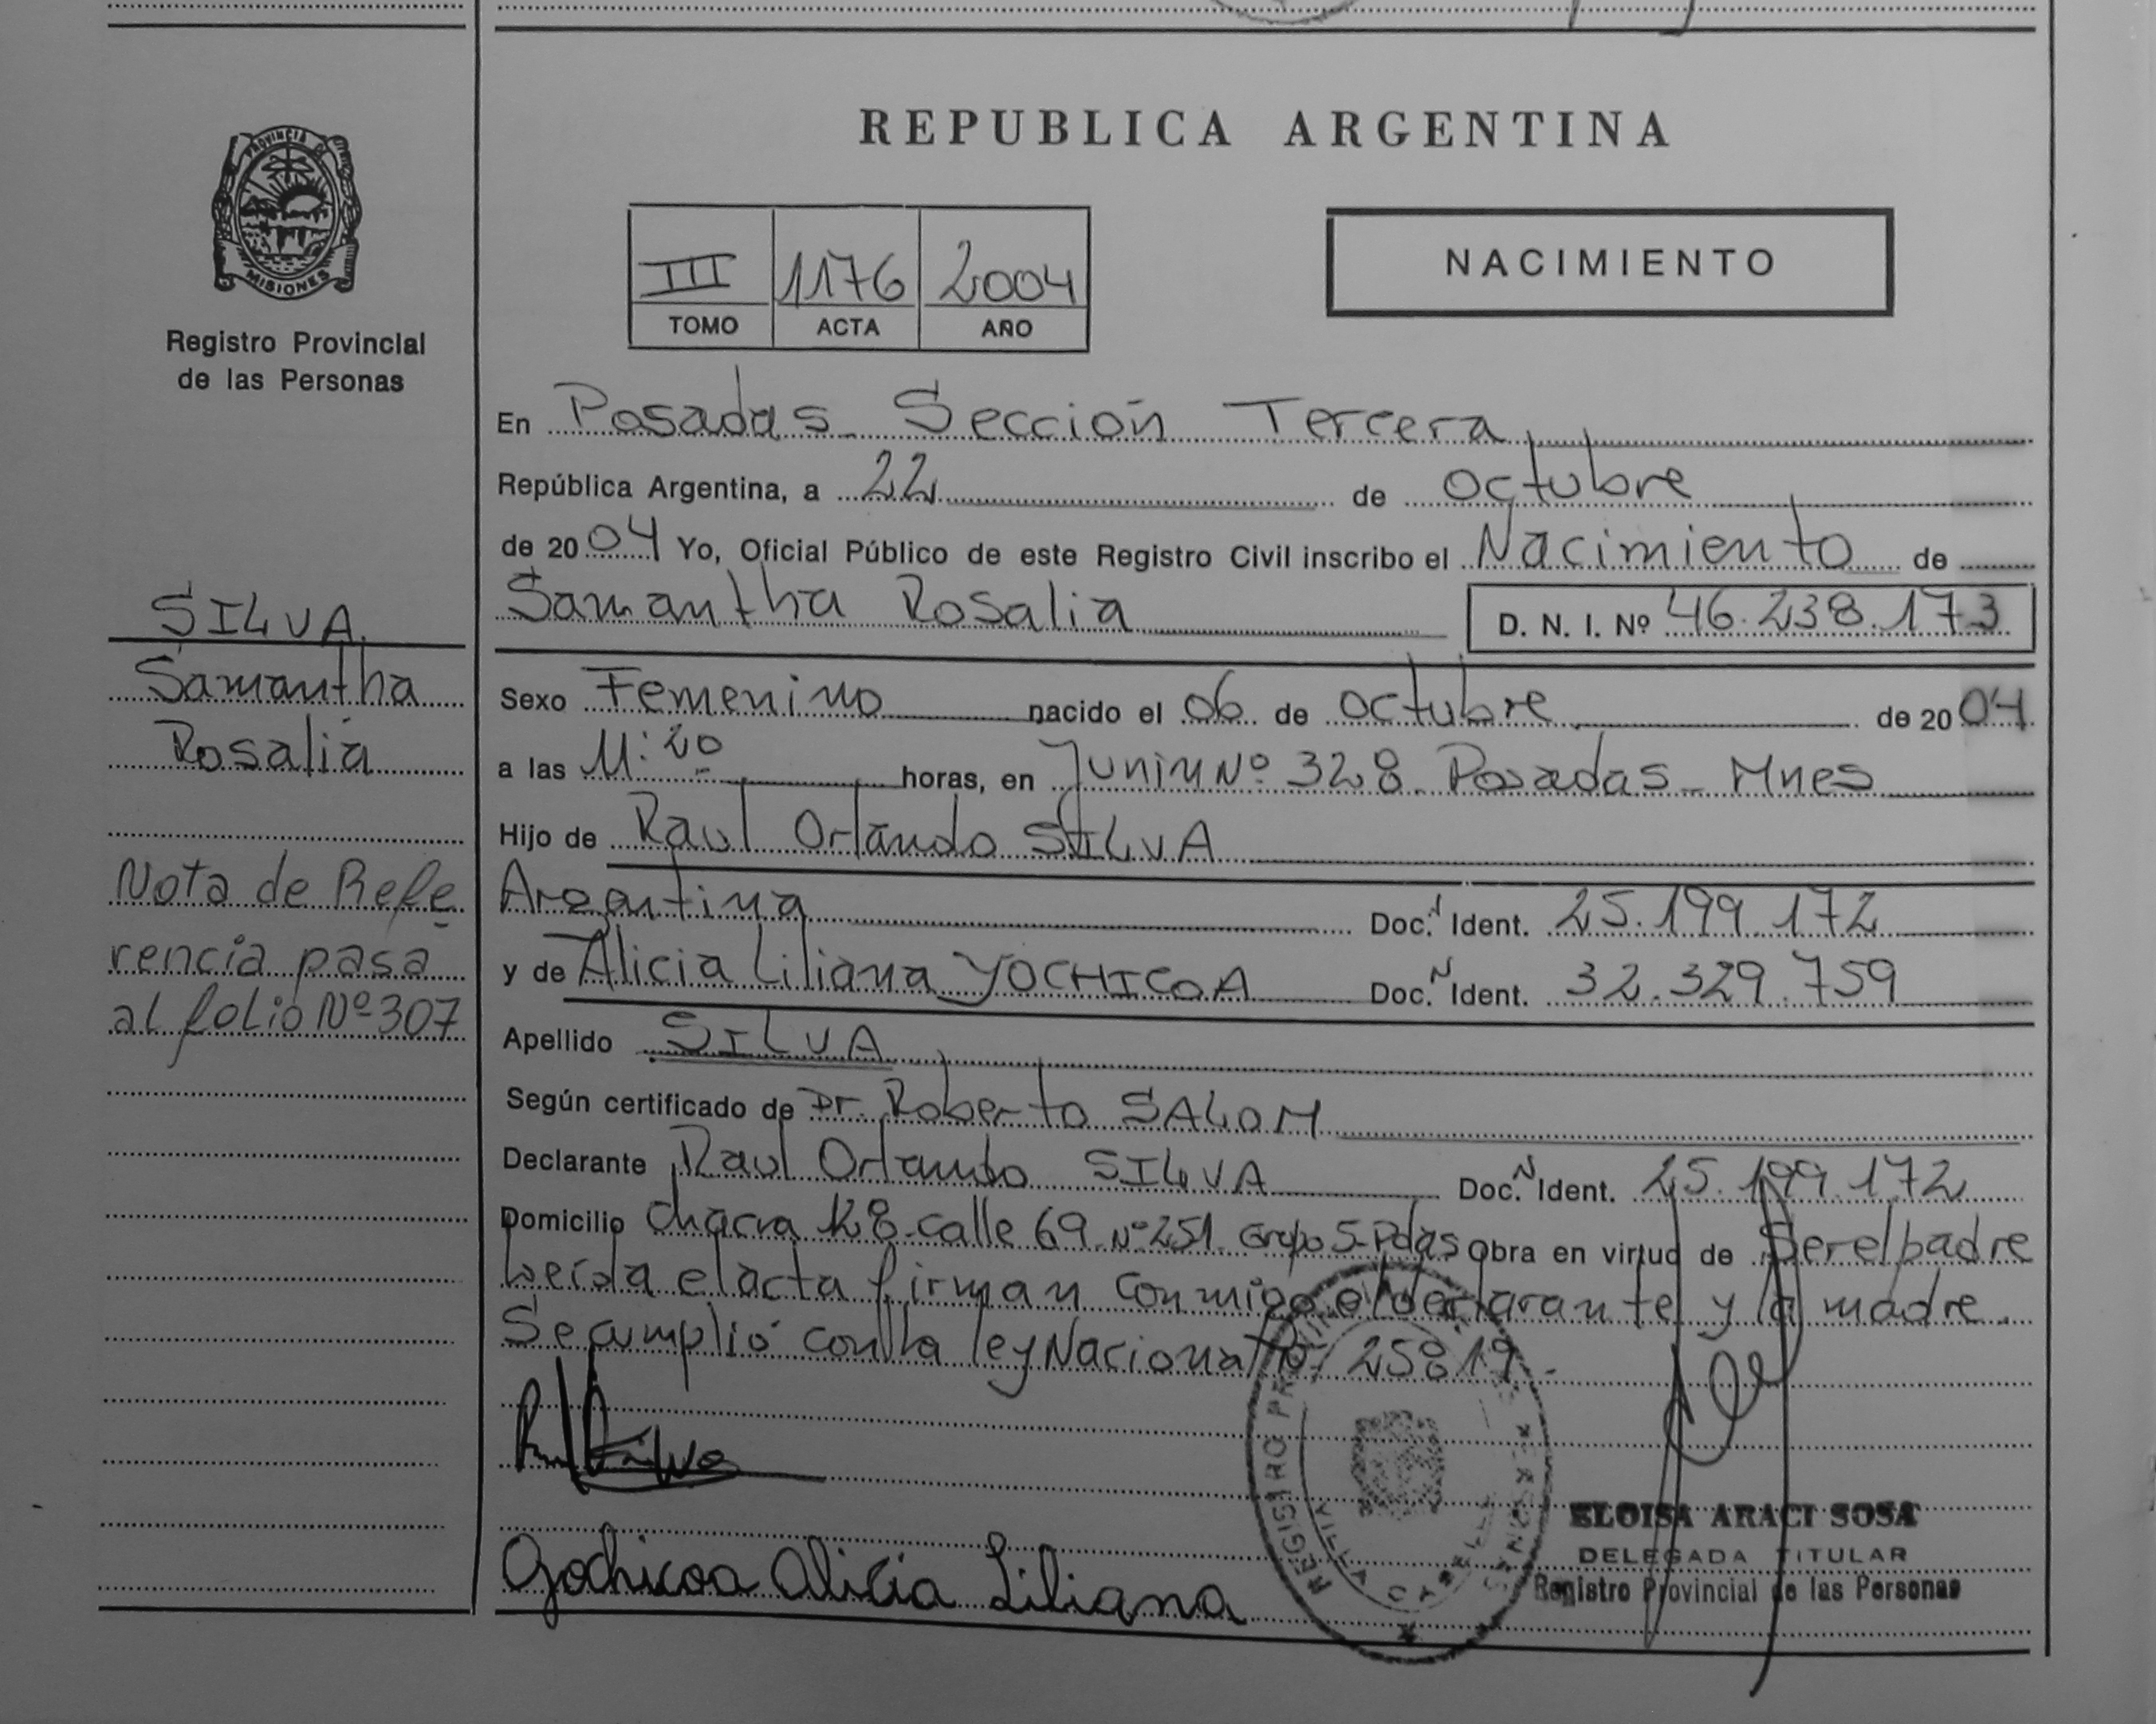 PROVINCIA DE
MISIONES
Registro Provincial
de las Personas
SILVA
Samantha
Rosalia
Nota de Refe
rencia pasa
al folio Nº 307
REPUBLICA ARGENTINA
III 1176 2004
TOMO ACTA AÑO
NACIMIENTO
En Posadas - Sección Tercera
República Argentina, a 22 de octubre
de 2004 Yo, Oficial Público de este Registro Civil inscribo el Nacimiento de
Samantha Rosalia D. N. I. Nº 46.238.173
Sexo Femenino nacido el 06 de octubre de 2004
a las 11:20 horas, en Junin Nº 328 Posadas - Mnes
Hijo de Raul Orlando SILVA
Argentina Doc. Ident. 25.199.172
y de Alicia Liliana YOCHICOA Doc. Ident. 32.329.759
Apellido SILVA
Según certificado de Dr. Roberto SALOM
Declarante Raul Orlando SILVA Doc. Ident. 25.199.172
Domicilio chacra 128 calle 69 Nº 251 Grupo 5 - Pdas Obra en virtud de Ser el padre
Leida el acta firman conmigo el declarante y la madre.
Se cumplió con la ley Nacional Nº 25819.
Gochicoa Alicia Liliana
REGISTRO PROVINCIAL
ELOISA ARACI SOSA
DELEGADA TITULAR
Registro Provincial de las Personas